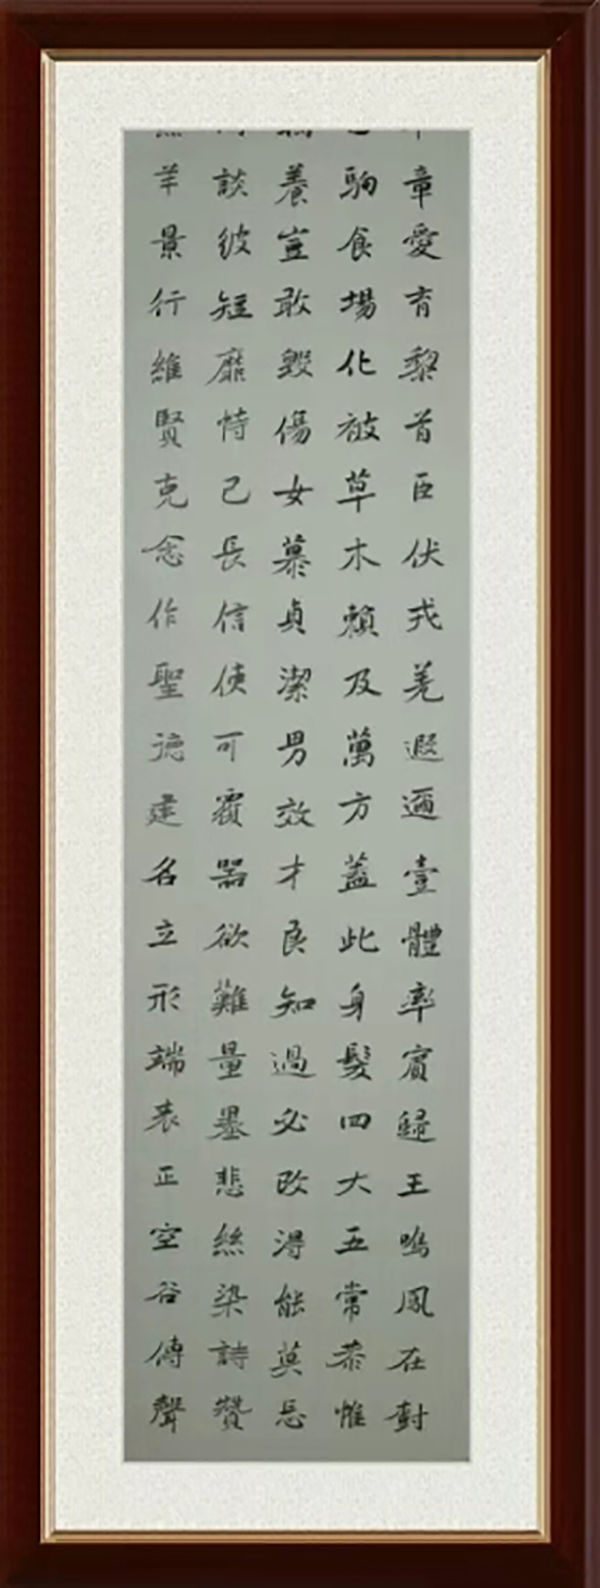 章愛育黎首臣伏戎羌遐邇壹體率賓歸王鳴鳳在樹
駒食場化被草木賴及萬方蓋此身髮四大五常恭惟
養豈敢毀傷女慕貞潔男效才良知過必改得能莫忘
談彼短靡恃己長信使可覆器欲難量墨悲絲染詩贊
羊景行維賢克念作聖德建名立形端表正空谷傳聲